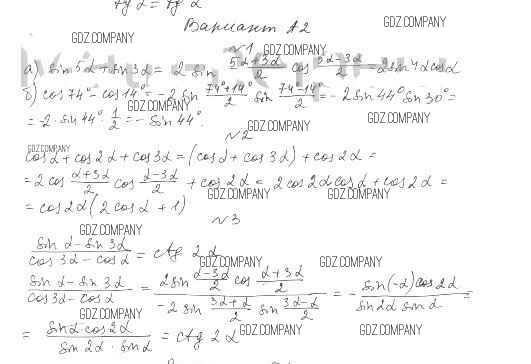 tg 2 = tg 2
Вариант А2
GDZ.COMPANY
GDZ.COMPANY
№1 GDZ.COMPANY
а) sin5α + sin3α = 2 sin (5α+3α)/2 cos (5α-3α)/2 = 2sin4α cosα
б) cos74° - cos14° = -2 sin (74°+14°)/2 sin (74-14°)/2 = -2sin44° sin30° =
GDZ.COMPANY GDZ.COMPANY
= -2·sin44°·1/2 = -sin44°.
№2
GDZ.COMPANY
cosα + cos2α + cos3α = (cosα + cos3α) + cos2α =
= 2cos (α+3α)/2 cos (α-3α)/2 + cos2α = 2cos2α cosα + cos2α =
GDZ.COMPANY GDZ.COMPANY
= cos2α(2cosα + 1)
№3
GDZ.COMPANY
(sinα - sin3α)/(cos3α - cosα) = ctg 2α
GDZ.COMPANY GDZ.COMPANY
(sinα - sin3α)/(cos3α - cosα) = (2sin (α-3α)/2 cos (α+3α)/2)/(-2 sin (3α+α)/2 sin (3α-α)/2) = -(sin(-α)cos2α)/(sin2α sinα) =
GDZ.COMPANY
= (sinα·cos2α)/(sin2α·sinα) = ctg 2α
GDZ.COMPANY GDZ.COMPANY